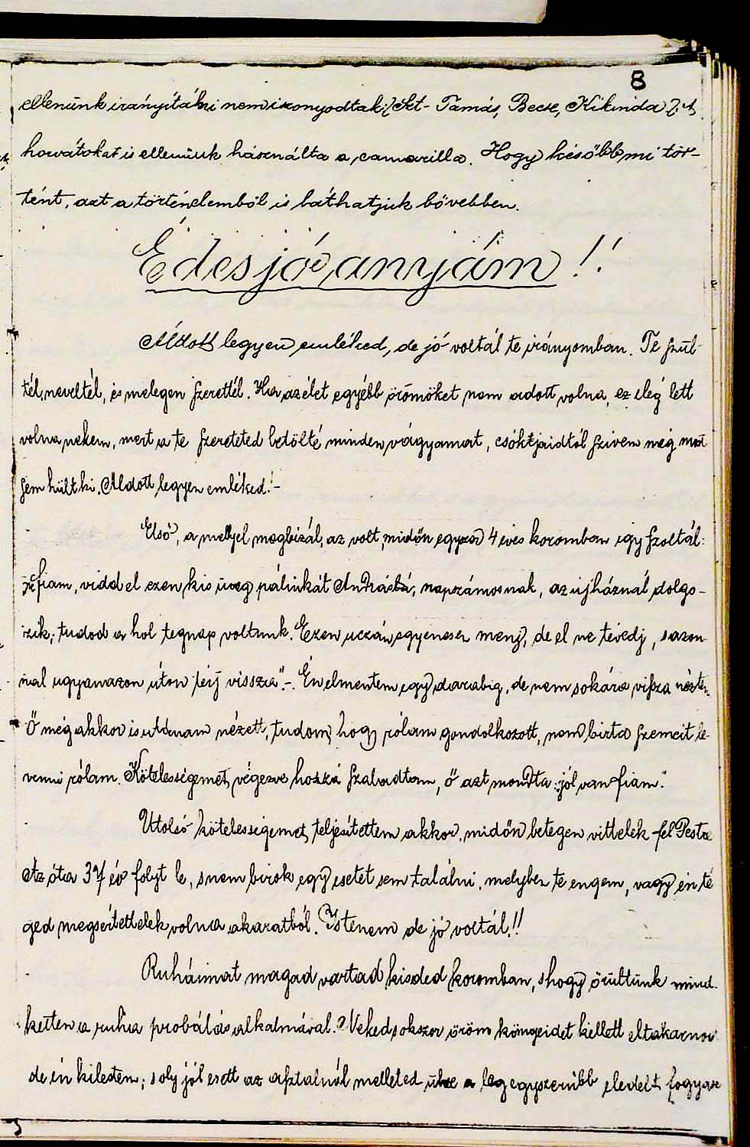 8
ellenünk irányítani nem iszonyodtak; (Szt- Tamás, Becse, Kikinda)
horvátokat is ellenünk használta a camarilla. Hogy később mi tör-
tént, azt a történelemből is láthatjuk bővebben.
Édes jó anyám!!
Áldott legyen emléked, de jó voltál te irányomban. Te szül-
tél, neveltél, és melegen szerettél. Ha az élet egyébb örömöket nem adott volna, ez elég lett
volna nekem, mert a te szereteted betölté minden vágyamat, csókjaidtól szivem még most
sem hült ki. Áldott legyen emléked!-
Első, a mellyel megbizál, az volt, midőn egyszer 4 éves koromban egy szoltál:
fiam, vidd el ezen kis üveg pálinkát András, napszámosnak, az ujháznál dolgo-
zik; tudod a hol tegnap voltunk. Ezen uczán egyenesen menj, de el ne tévedj, s azon-
nal ugyanazon úton térj vissza".- Én elmentem egy darabig, de nem sokára vissza néztem
Ő még akkor is utánam nézett, tudom, hogy rólam gondolkozott, nem birta szemeit le-
venni rólam. Kötelességemet végezve hozzá szaladtam, ő azt mondta: jól van fiam."
Utolsó kötelességemet teljesítettem akkor, midőn betegen vittelek fel Pestre
Az óta 37 év folyt le, s nem birok egy esetet sem találni, melyben te engem, vagy én té
ged megsértettelek volna akaratból. Istenem de jó voltál!!
Ruháimat magad vartad kisded koromban, s hogy örültünk mind-
ketten a ruha probálás alkalmával. Neked sokszor öröm könyeidet kellett eltakarnod
de én kilestem; s oly jól esett az asztalnál melleted ülve a legegyszerübb eledelt fogyasz